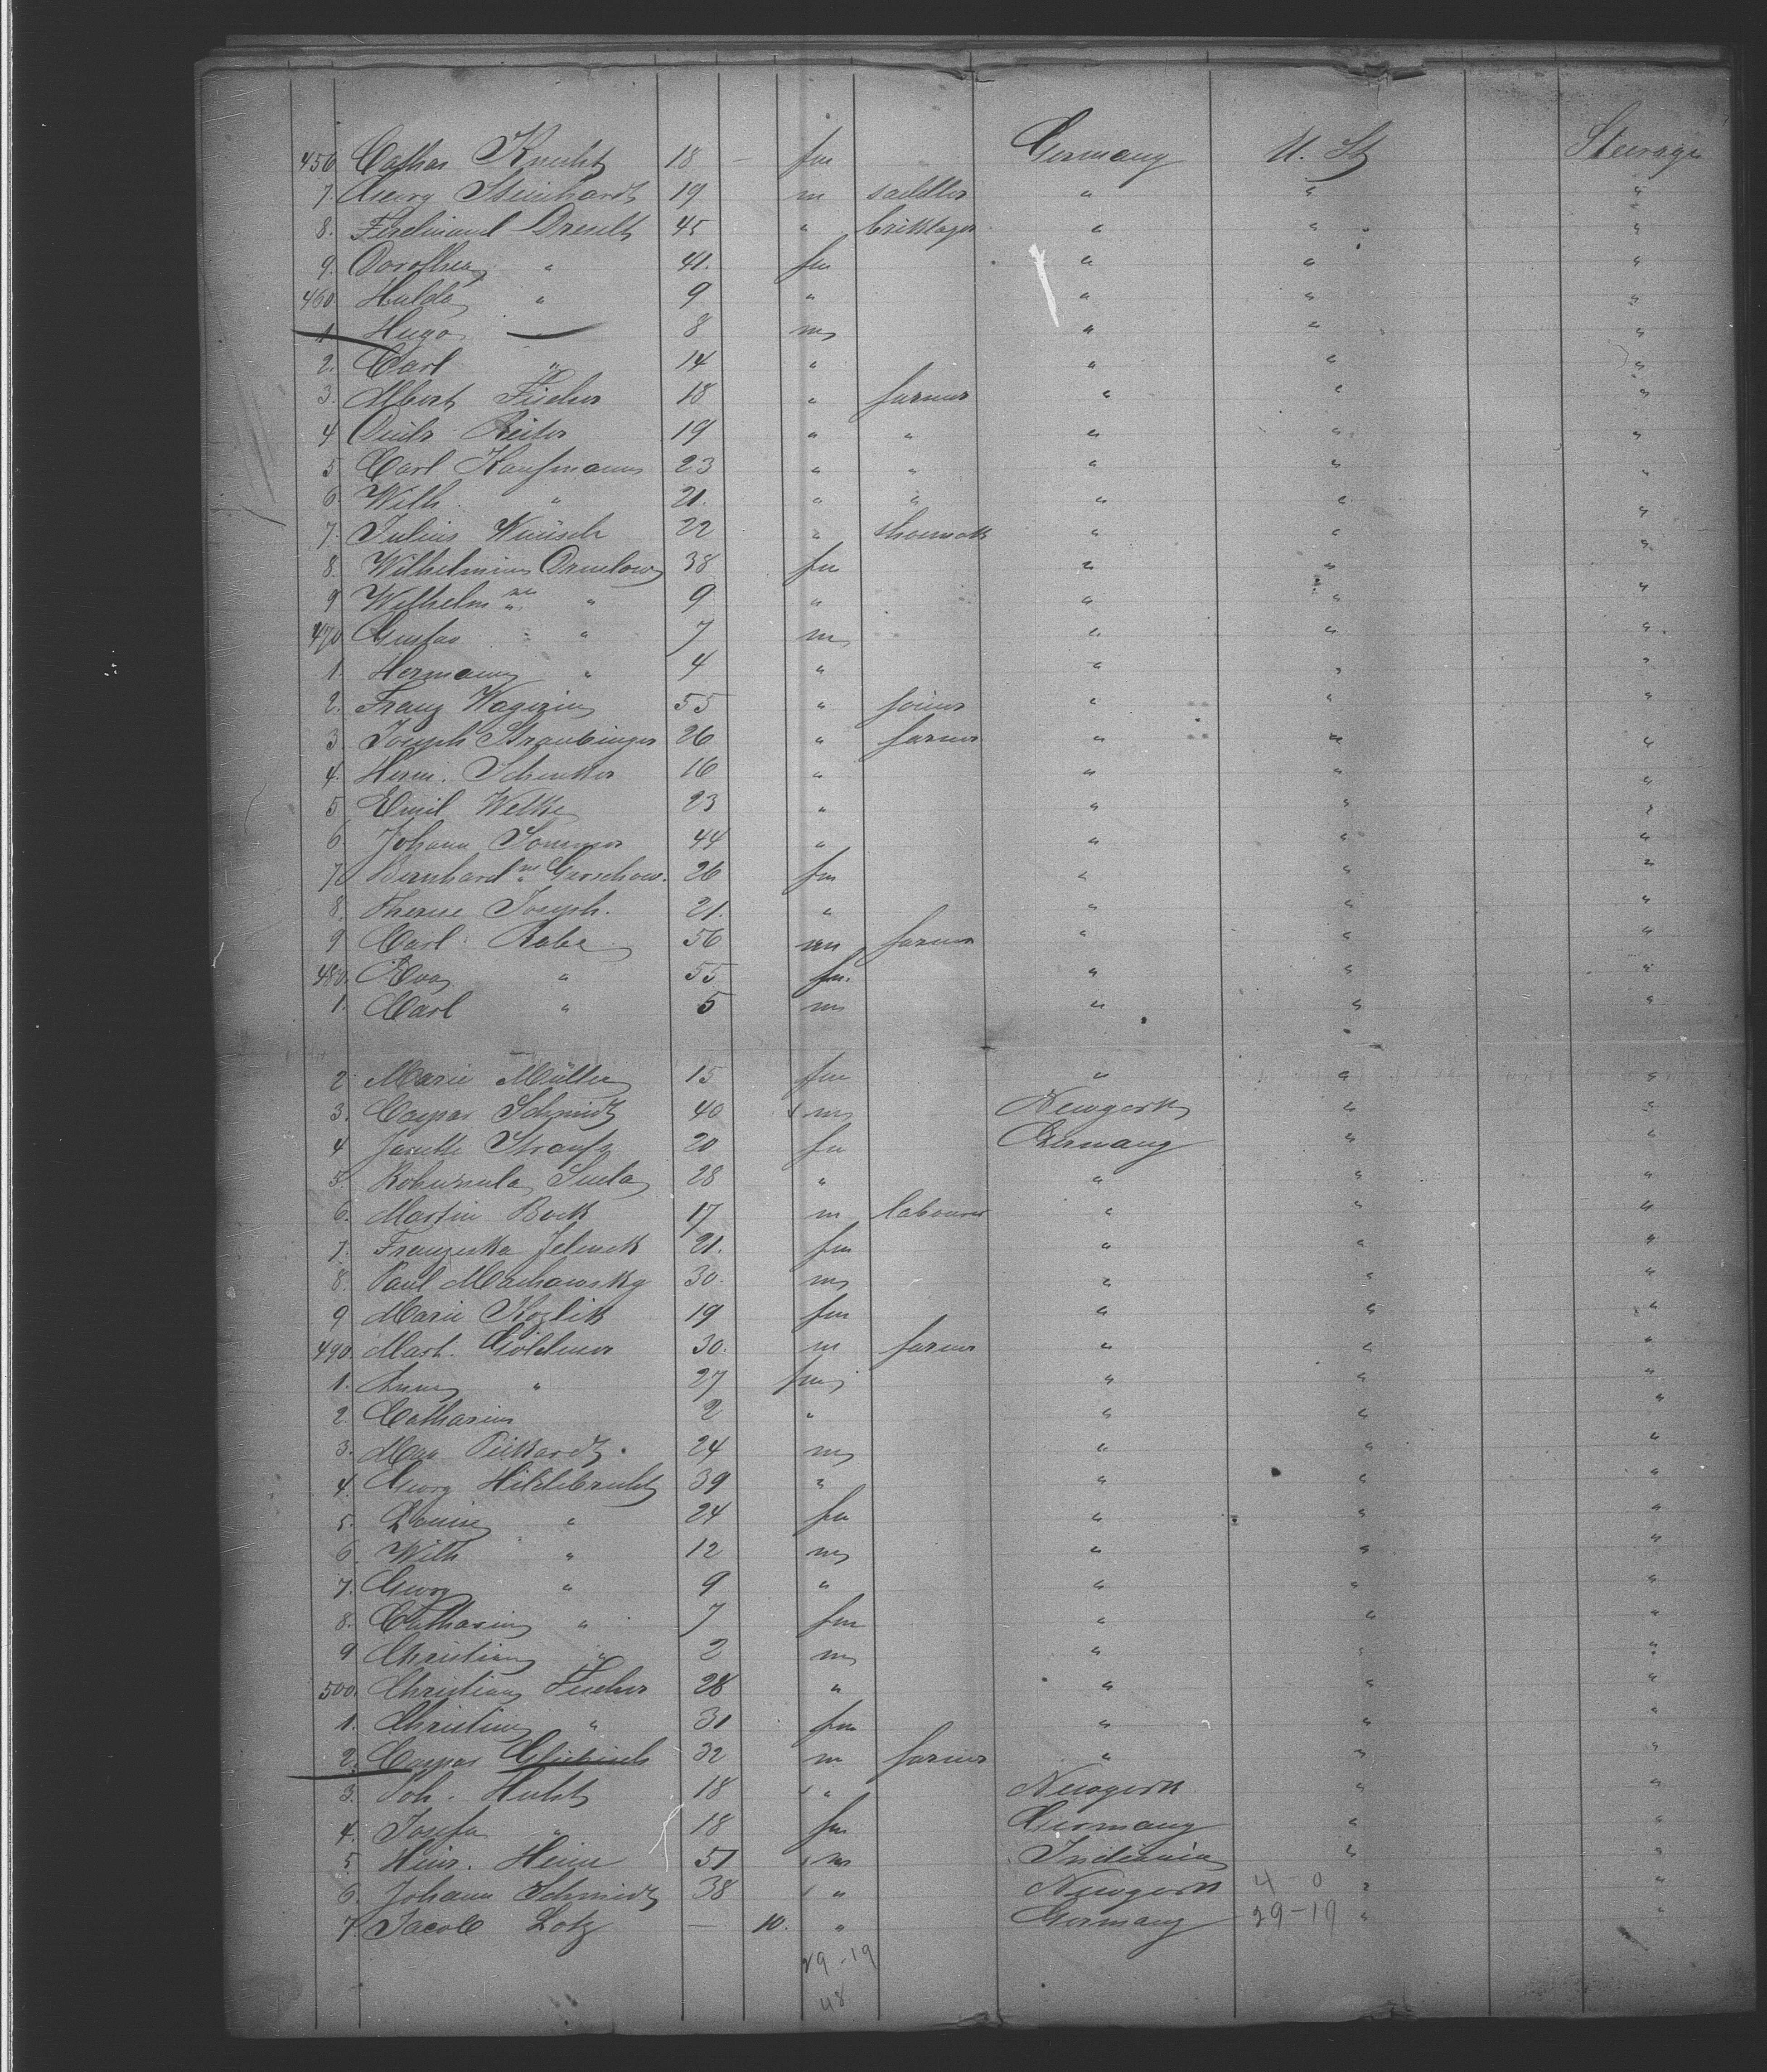 456 Cathar Knecht 18 – fm Germany U. St Steerage
7. Georg Steinhardt 19 m saddler " " "
8. Ferdinand Drescth 45 " bricklayer " " "
9. Dorothea " 41. fm " " "
460 Hulda " 9 " " " "
1 Hugo 8 m " " "
2. Carl " 14 " " " "
3. Albert Fischer 18 " farmer " " "
4 Reiter 19 " " " " "
5 Carl Kaufmann 23 " " " " "
6 Wilh. " 21. " " " " "
7. Julius Wünsch 22 " shoemak " " "
8. Wilhelmine Drulow 38 fm " " "
9 Wilhelm ne " 9 " " " "
470 Gustav " 7 m " " "
1. Hermann " 4 " " " "
2. Franz 55 " joiner " " "
3 Joseph Straubinger 26 " farmer " " "
4. Herm. Schenker 16 " " " "
5 Emil Welke 23 " " " "
6 Johann Sommer 44 " " " "
7. Bernhard ne Garschow. 26 fm " " "
8. Therese Joseph. 21. " " " "
9 Carl Rabe 56 m farmer " " "
480. Eva " 55 fm. " " "
1. Carl " 5 m " " "
2 Marie Müller 15 fm " " "
3. Caspar Schmidt 40 m Newyork " "
4 Janette Strauss 20 fm Germany " "
5. 28 " " " "
6. Martin Bock 17 m labourer " " "
7. Franziska Jelinek 21. fm " " "
8. Paul Machowsky 30. m " " "
9 Marie Kozlik 19 fm " " "
490. Mart. Goldner 30. m farmer " " "
1. Anna " 27 fm " " "
2. Catharine 2 " " " "
3. Max Pickardt. 24 m " " "
4. Georg Hildebrecht 39 " " " "
5. Louise " 24 fm " " "
6. Wilh " 12 m " " "
7. Georg " 9 " " " "
8. Catharine " 7 fm " " "
9 Christian " 2 m " " "
500. Christian Fischer 28 " " " "
1. Christine " 31 fm " " "
2. Caspar 32 m farmer " " "
3. Joh. Hecht 18 " Newyork " "
4. Josefa " 18 fm Germany " "
5. Heinr. Heine 51 m " "
6. Johann Schmidt 38 " Newyork 4 – 0 " "
7. Jacob Lotz — 10. " Germany 29 – 19 " "
29 – 19
48